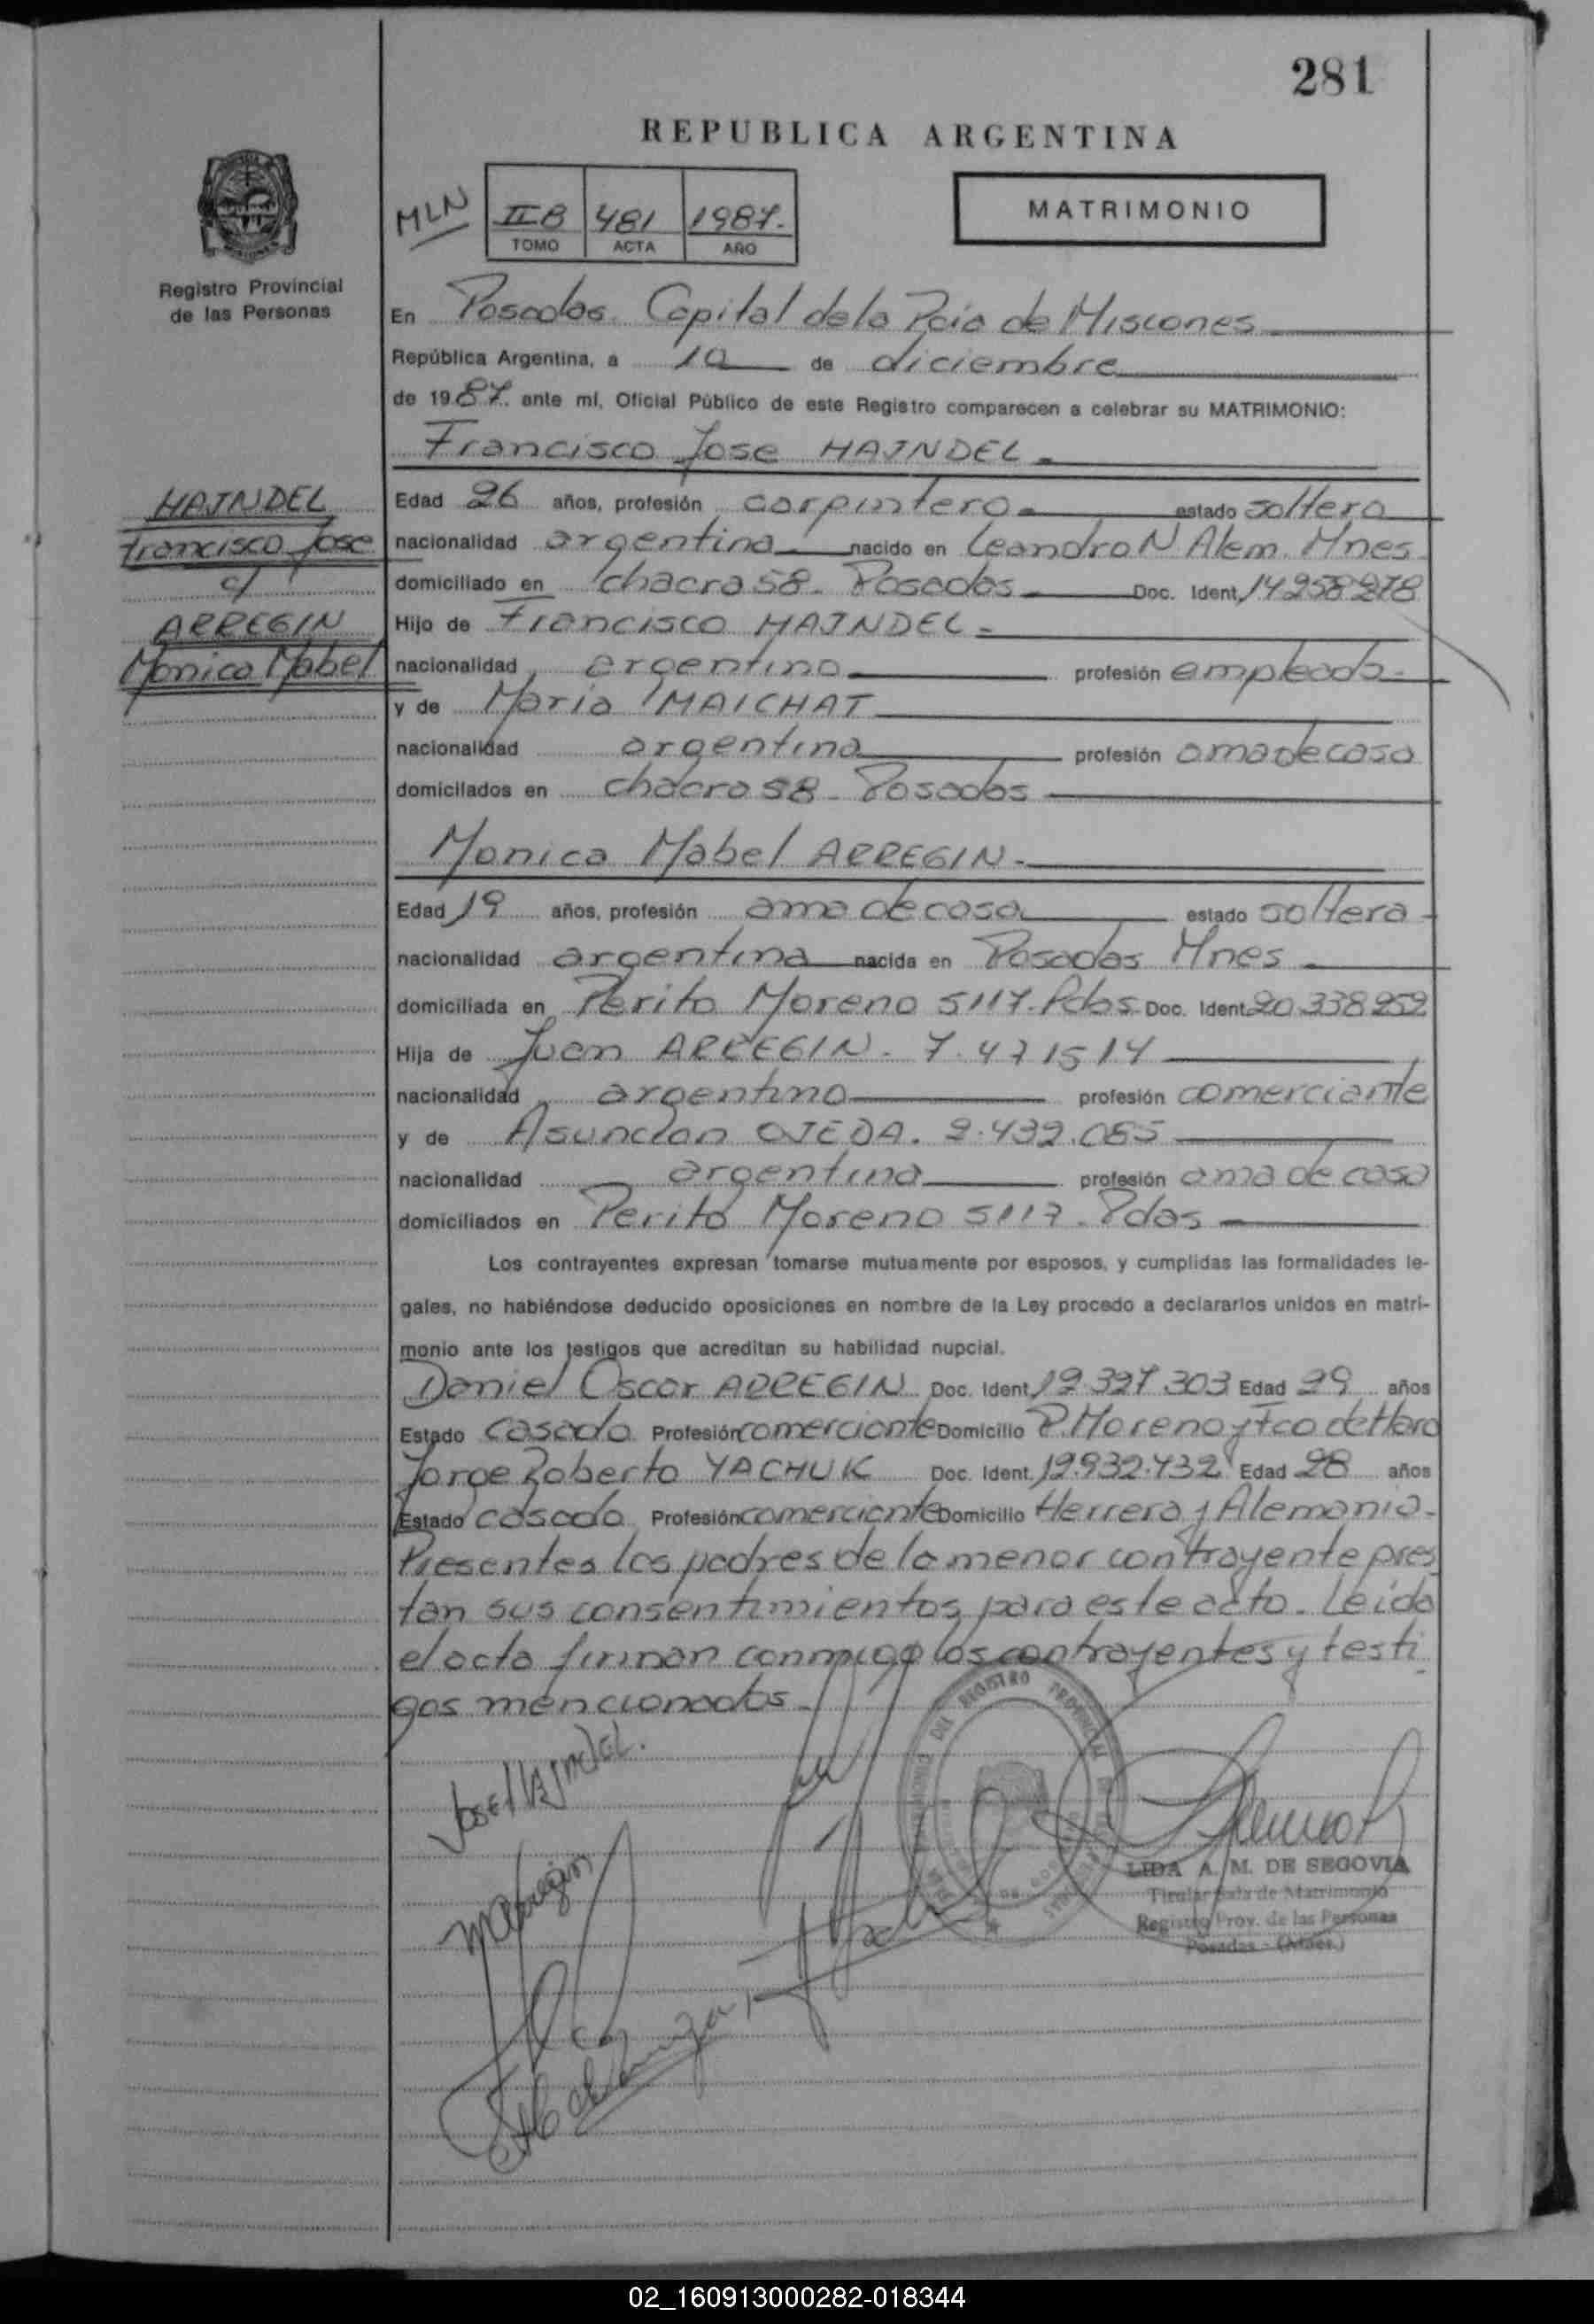 281
REPUBLICA ARGENTINA
MLN
IIB 481 1987.-
TOMO ACTA AÑO
MATRIMONIO
Registro Provincial
de las Personas
En Posadas Capital de la Pcia de Misiones
República Argentina, a 10 de diciembre
de 1987. ante mí, Oficial Público de este Registro comparecen a celebrar su MATRIMONIO:
Francisco Jose HAJNDEL.
HAJNDEL
Francisco Jose
c/
ARREGIN
Monica Mabel
Edad 26 años, profesión carpintero estado soltero
nacionalidad argentina nacido en Leandro N Alem. Mnes
domiciliado en chacra 58- Posadas Doc. Ident. 14.258.278
Hijo de Francisco HAJNDEL-
nacionalidad argentino profesión empleado
y de Maria MAICHAT
nacionalidad argentina profesión ama de casa
domicilados en chacra 58- Posadas
Monica Mabel ARREGIN-
Edad 19 años, profesión ama de casa estado soltera
nacionalidad argentina nacida en Posadas Mnes
domiciliada en Perito Moreno 5117. Pdas Doc. Ident. 20.338.252
Hija de Juan ARREGIN. 7.471514
nacionalidad argentino profesión comerciante
y de Asuncion OJEDA. 2.432.085
nacionalidad argentina profesión ama de casa
domiciliados en Perito Moreno 5117. Pdas
Los contrayentes expresan tomarse mutuamente por esposos, y cumplidas las formalidades le-
gales, no habiéndose deducido oposiciones en nombre de la Ley procedo a declararlos unidos en matri-
monio ante los testigos que acreditan su habilidad nupcial.
Daniel Oscar ARREGIN Doc. Ident. 12.327.303 Edad 29 años
Estado casado Profesión comerciante Domicilio P. Moreno y Fco de Haro
Jorge Roberto YACHUK Doc. Ident. 12.932.432 Edad 28 años
Estado casado Profesión comerciante Domicilio Herrera y Alemania-
Presentes los padres de la menor contrayente pres
tan sus consentimientos para este acto. Leida
el acta firman conmigo los contrayentes y testi
gos mencionados
Jose Hajndel.
MArregin
LIDA A. M. DE SEGOVIA
Titular Sala de Matrimonio
Registro Prov. de las Personas
Posadas - (Mnes.)
02_160913000282-018344